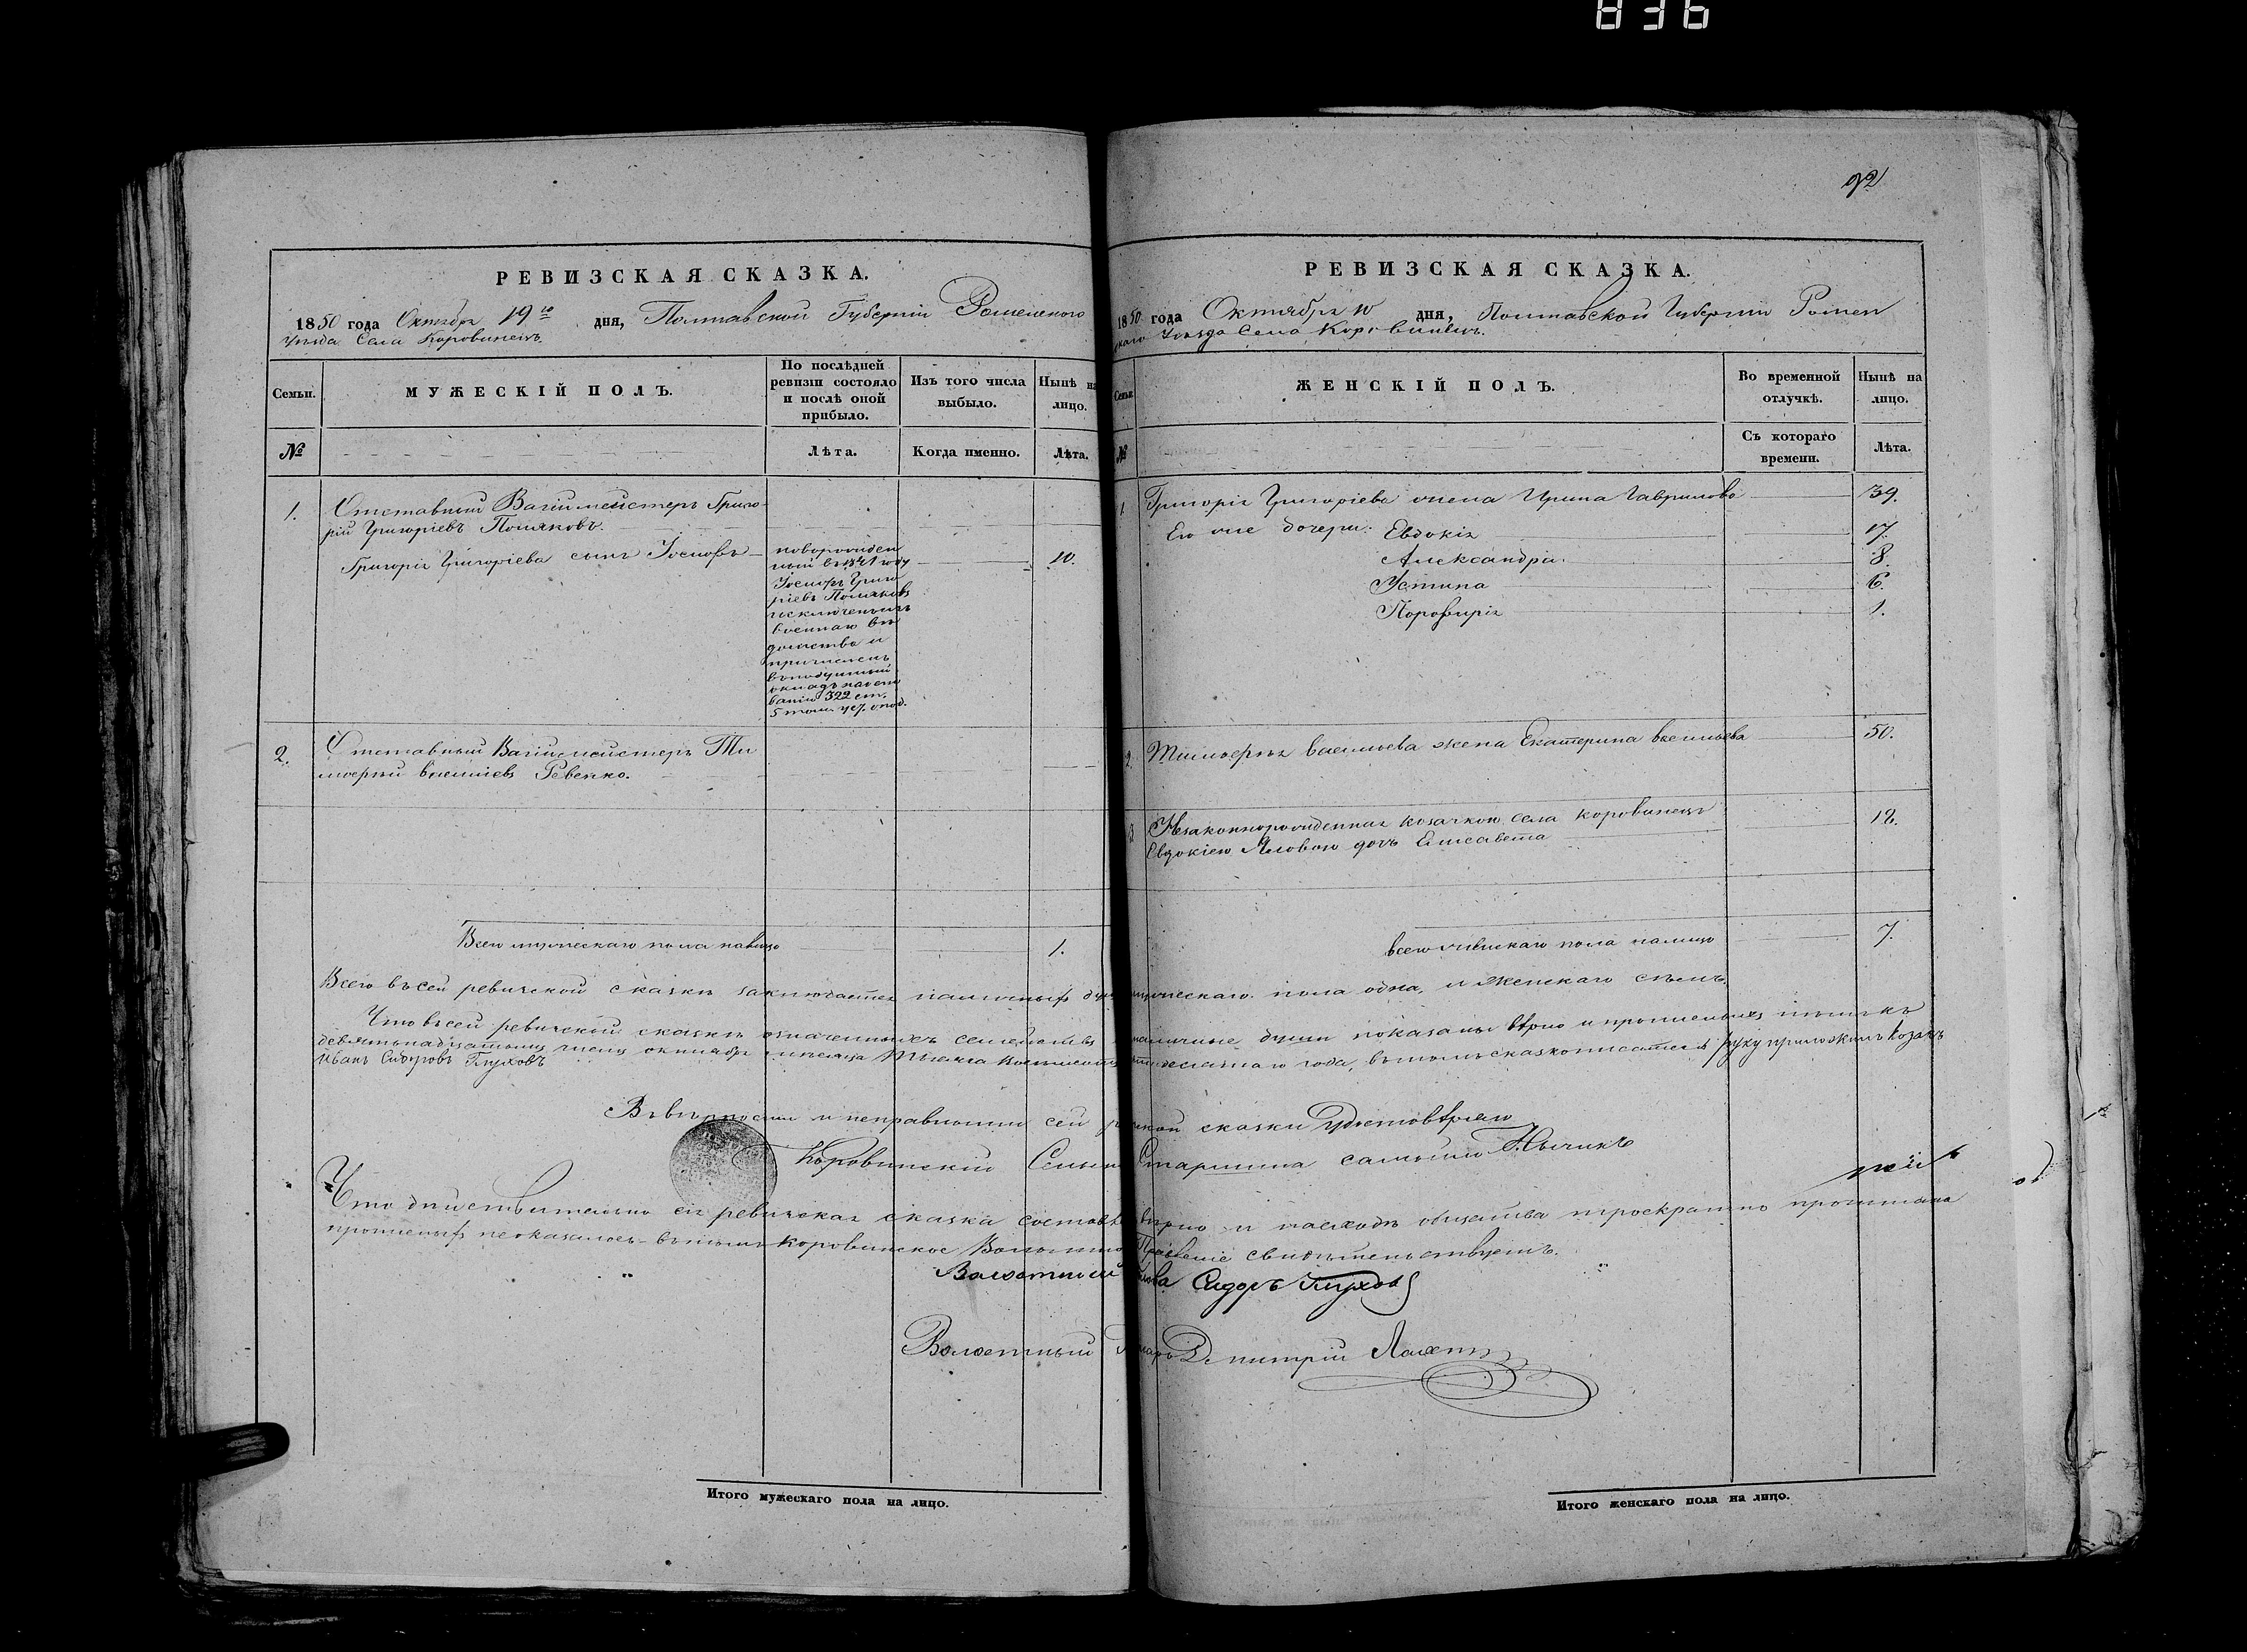 836
92
РЕВИЗСКАЯ СКАЗКА.
1850 года Октября 19го дня, Полтавской Губерніи Роменскаго
Уѣзда Села Коровинецъ.
Семьи. МУЖЕСКІЙ ПОЛЪ. По послѣдней ревизіи состояло и послѣ оной прибыло. Изъ того числа выбыло. Нынѣ на лицо.
№ Лѣта. Когда именно. Лѣта.
1. Отставный Вахмистеръ Григо-
рій Григоріевъ Поляковъ.
Григорія Григоріева сынъ Іосифъ 10.
новорожден
ный въ 1841 году
Іосифъ Григо
ріевъ Поляковъ
исключенъ изъ
военнаго вѣ
домства и
причисленъ
въ подушный
окладъ на осно
ваніи 322 ст.
5 тома
2. Отставный Вахмистеръ Ти
моѳей Василіевъ Ревенко.
Всего мужескаго пола налицо 1.
РЕВИЗСКАЯ СКАЗКА.
1850 года Октября дня, Полтавской Губерніи Ромен
скаго Уѣзда Села Коровинецъ.
Семьи. ЖЕНСКІЙ ПОЛЪ. Во временной отлучкѣ. Нынѣ на лицо.
№ Съ котораго времени. Лѣта.
1 Григорія Григоріева жена Ирина Гаврилова 39.
Его же дочери: Евдокія 17.
Александра 8.
Устина 6.
Порфирія 1.
2. Тимоѳея Васильева жена Екатерина Васильева 50.
3 Незаконнорожденная козачкою села Коровинецъ 12.
Евдокіею Яловою дочь Елисавета
всего женскаго пола налицо 7.
Всего въ сей ревизской сказкѣ заключается наличныхъ душъ мужескаго пола одна, и женскаго семь.
Что въ сей ревизской сказкѣ означенныхъ семействъ наличные души показаны вѣрно и прописныхъ нѣтъ къ
девятьнадцатому числу октября мѣсяца тысяча восемьсотъ пятьдесятаго года, въ томъ сказкописатель руку приложилъ козакъ
Иванъ Сидоровъ Глуховъ
Въ вѣрности и исправности сей ревизской сказки Удостовѣряю
Коровинскій Сельскій Старшина
Что дѣйствительно сія ревизская сказка составлена вѣрно и на сходѣ общества троекратно прочитана
прописныхъ не оказалось въ томъ Коровинское Волостное Правленіе свидѣтельствуетъ.
Волостный Голова Сидоръ Глуховъ
Волостный Писарь Дмитрій
Итого мужескаго пола на лицо.
Итого женскаго пола на лицо.